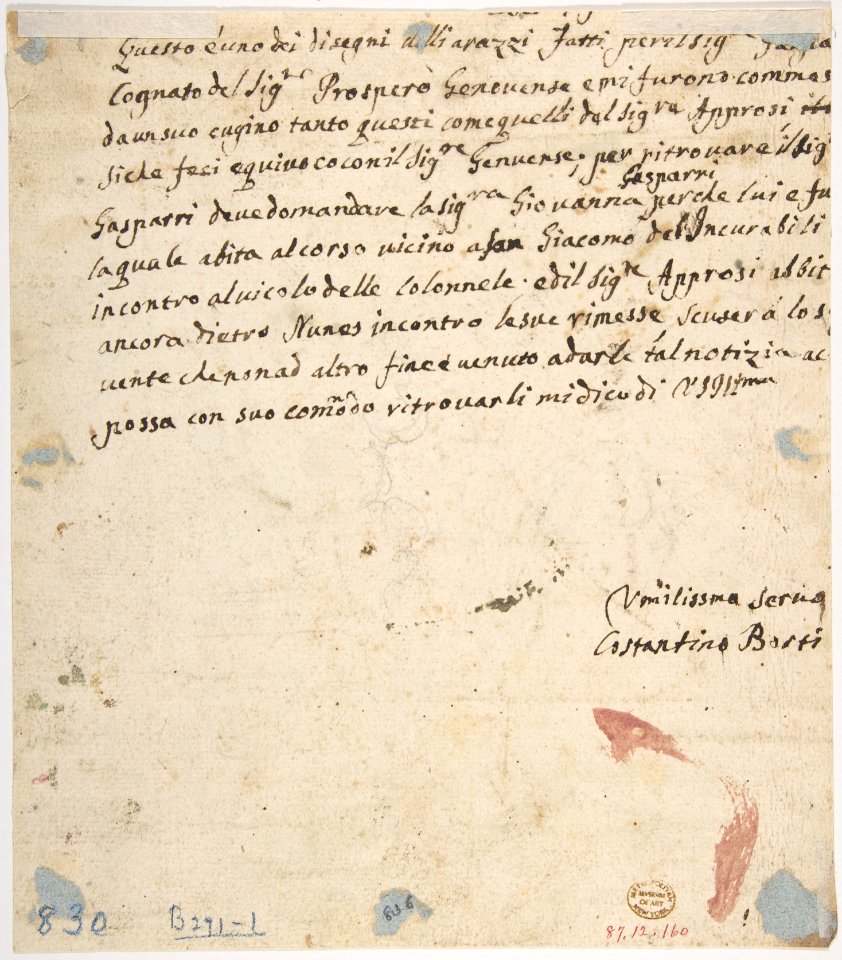 Questo è uno dei disegni delli arazzi fatti per il sig.re
Cognato del sig.re Prospero Genovense e mi furono commes
da un suo cugino tanto questi come quelli del sig.ra Approsi
siche feci equivoco con il sig.re Genuense; per ritrovare il sig
Gasparri
Gasparri deve domandare la sig.ra Giovanna perche lui e fu
la quale abita al corso vicino a san Giacomo del Incurabili
incontro al vicolo delle Colonnele. ed il sig.re Approsi abbit
ancora dietro Nunes incontro le sue rimesse scuserà lo s
vente che non ad altro fine è venuto a darle tal notizia ac
possa con suo com̃odo ritrovarli mi dico di VSIllma
Vmilissma servo
Costantino Borti
METROPOLITAN MUSEUM OF ART NEW YORK
830 B291-1 836 87.12.160